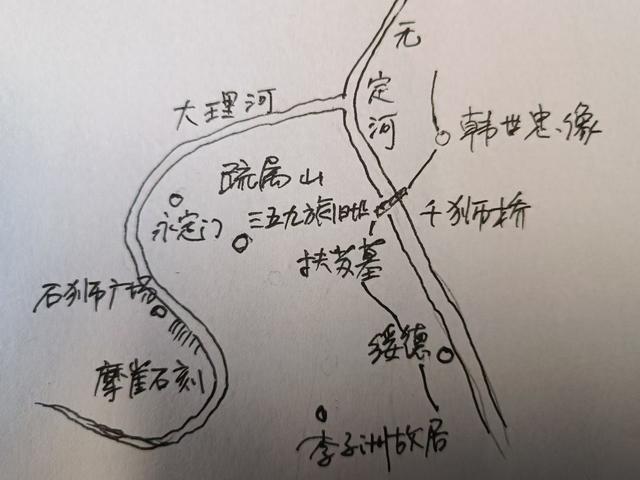 无定河
大理河
韩世忠像
疏属山
永定门
三五九旅旧址
千狮桥
扶苏墓
石狮广场
绥德
摩崖石刻
李子洲故居